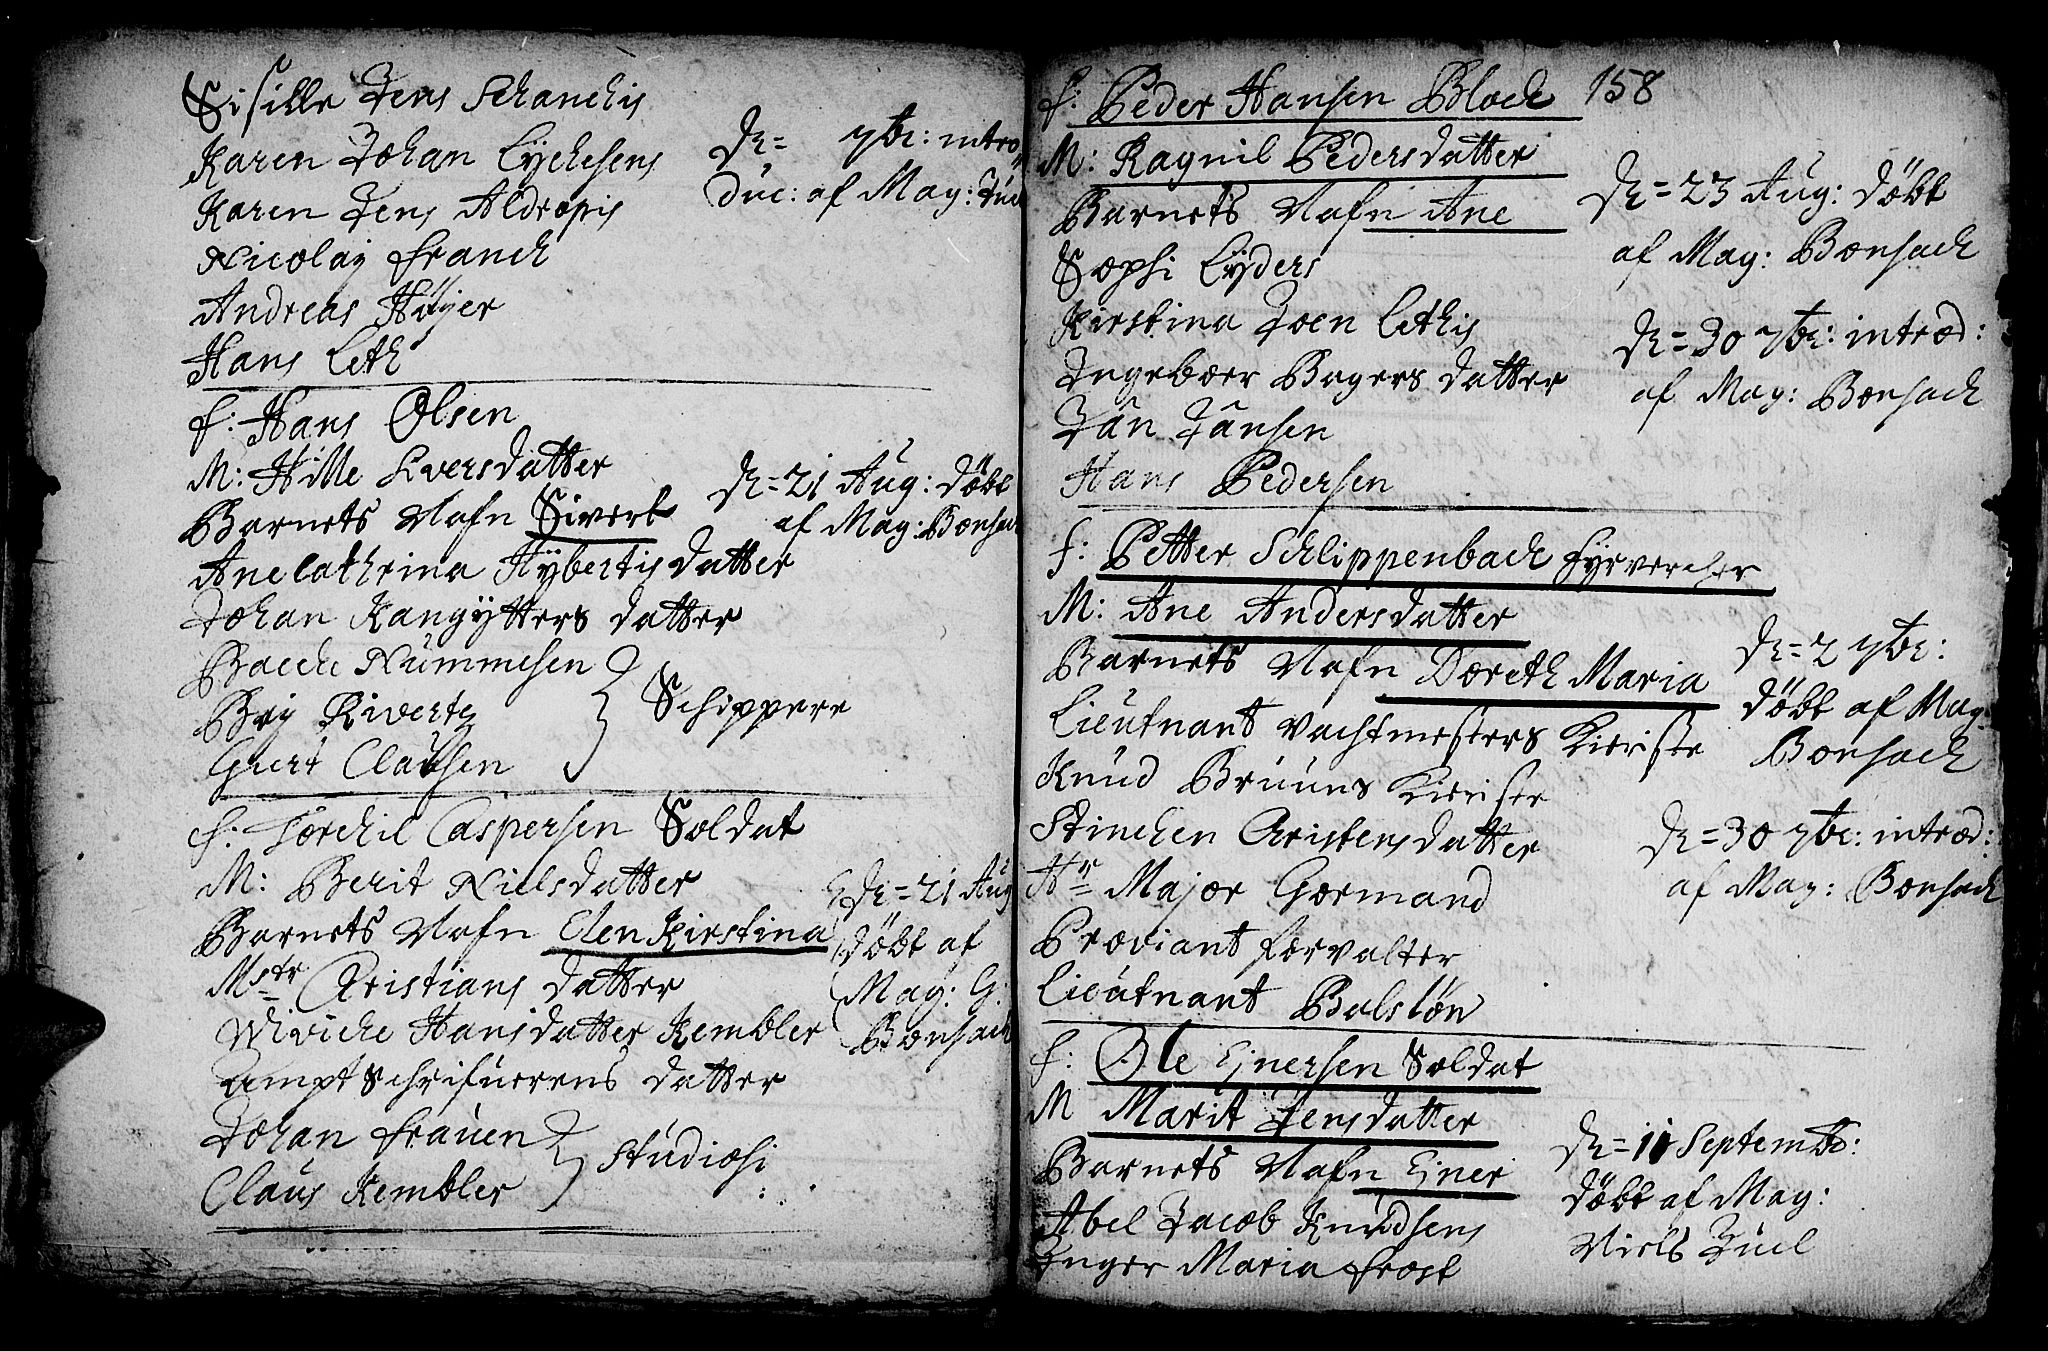 Sisille Jens Schanchis
Karen Johan Lychesens
Karen Jens Aldropis
Nicolay Franch
Andreas Høyer
Hans Leth
D= 7br: intro
duc: af Mag: Juel
f: Hans Olsen
M: Hille Iversdatter
Barnets Nafn Sivert
Ane Cathrina Hybertis datter
Johan Kangytters datter
Bacche Nummesen
Boy Siverts
Giert Clausen
Schippere
D= 21 Aug: døbt
af Mag: Bonsach
f: Torchil Caspersen Soldat
M: Berit Nielsdatter
Barnets Nafn Elen Kirstina
Mstr Christians datter
Wiviche Hansdatter Kembler
Amptschrifuerens datter
Johan Frauen
Claus Kembler
Studiosi
D= 21 Aug
døbt af
Mag: G:
Bonsach
158
f: Peder Hansen Bloch
M: Ragnil Pedersdatter
Barnets Nafn Ane
Sophi Lyders
Kirstina Joen Lethis
Ingeboer Bagers datter
Jan Jansen
Hans Pedersen
D= 23 Aug: døbt
af Mag: Bonsach
D= 30 7br: introd:
af Mag: Bonsach
f: Petter Schlippenbach fyrvercher
M: Ane Andersdatter
Barnets Nafn Doreth Maria
Lieutnant Vachtmesters Kieriste
Knud Bruuns Kieriste
Stinchen Christensdatter
Hr Major Gormand
Proviant forvalter
Lieutnant Balsløw
D= 2 7br:
døbt af Mag:
Bonsach
D= 30 7br: introd:
af Mag: Bonsach
f: Ole Ejnersen Soldat
M Marit Jensdatter
Barnets Nafn Ejner
Abel Jacob Knudsens
Inger Maria Frost
D= 11 Septembr:
døbt af Mag:
Niels Juel